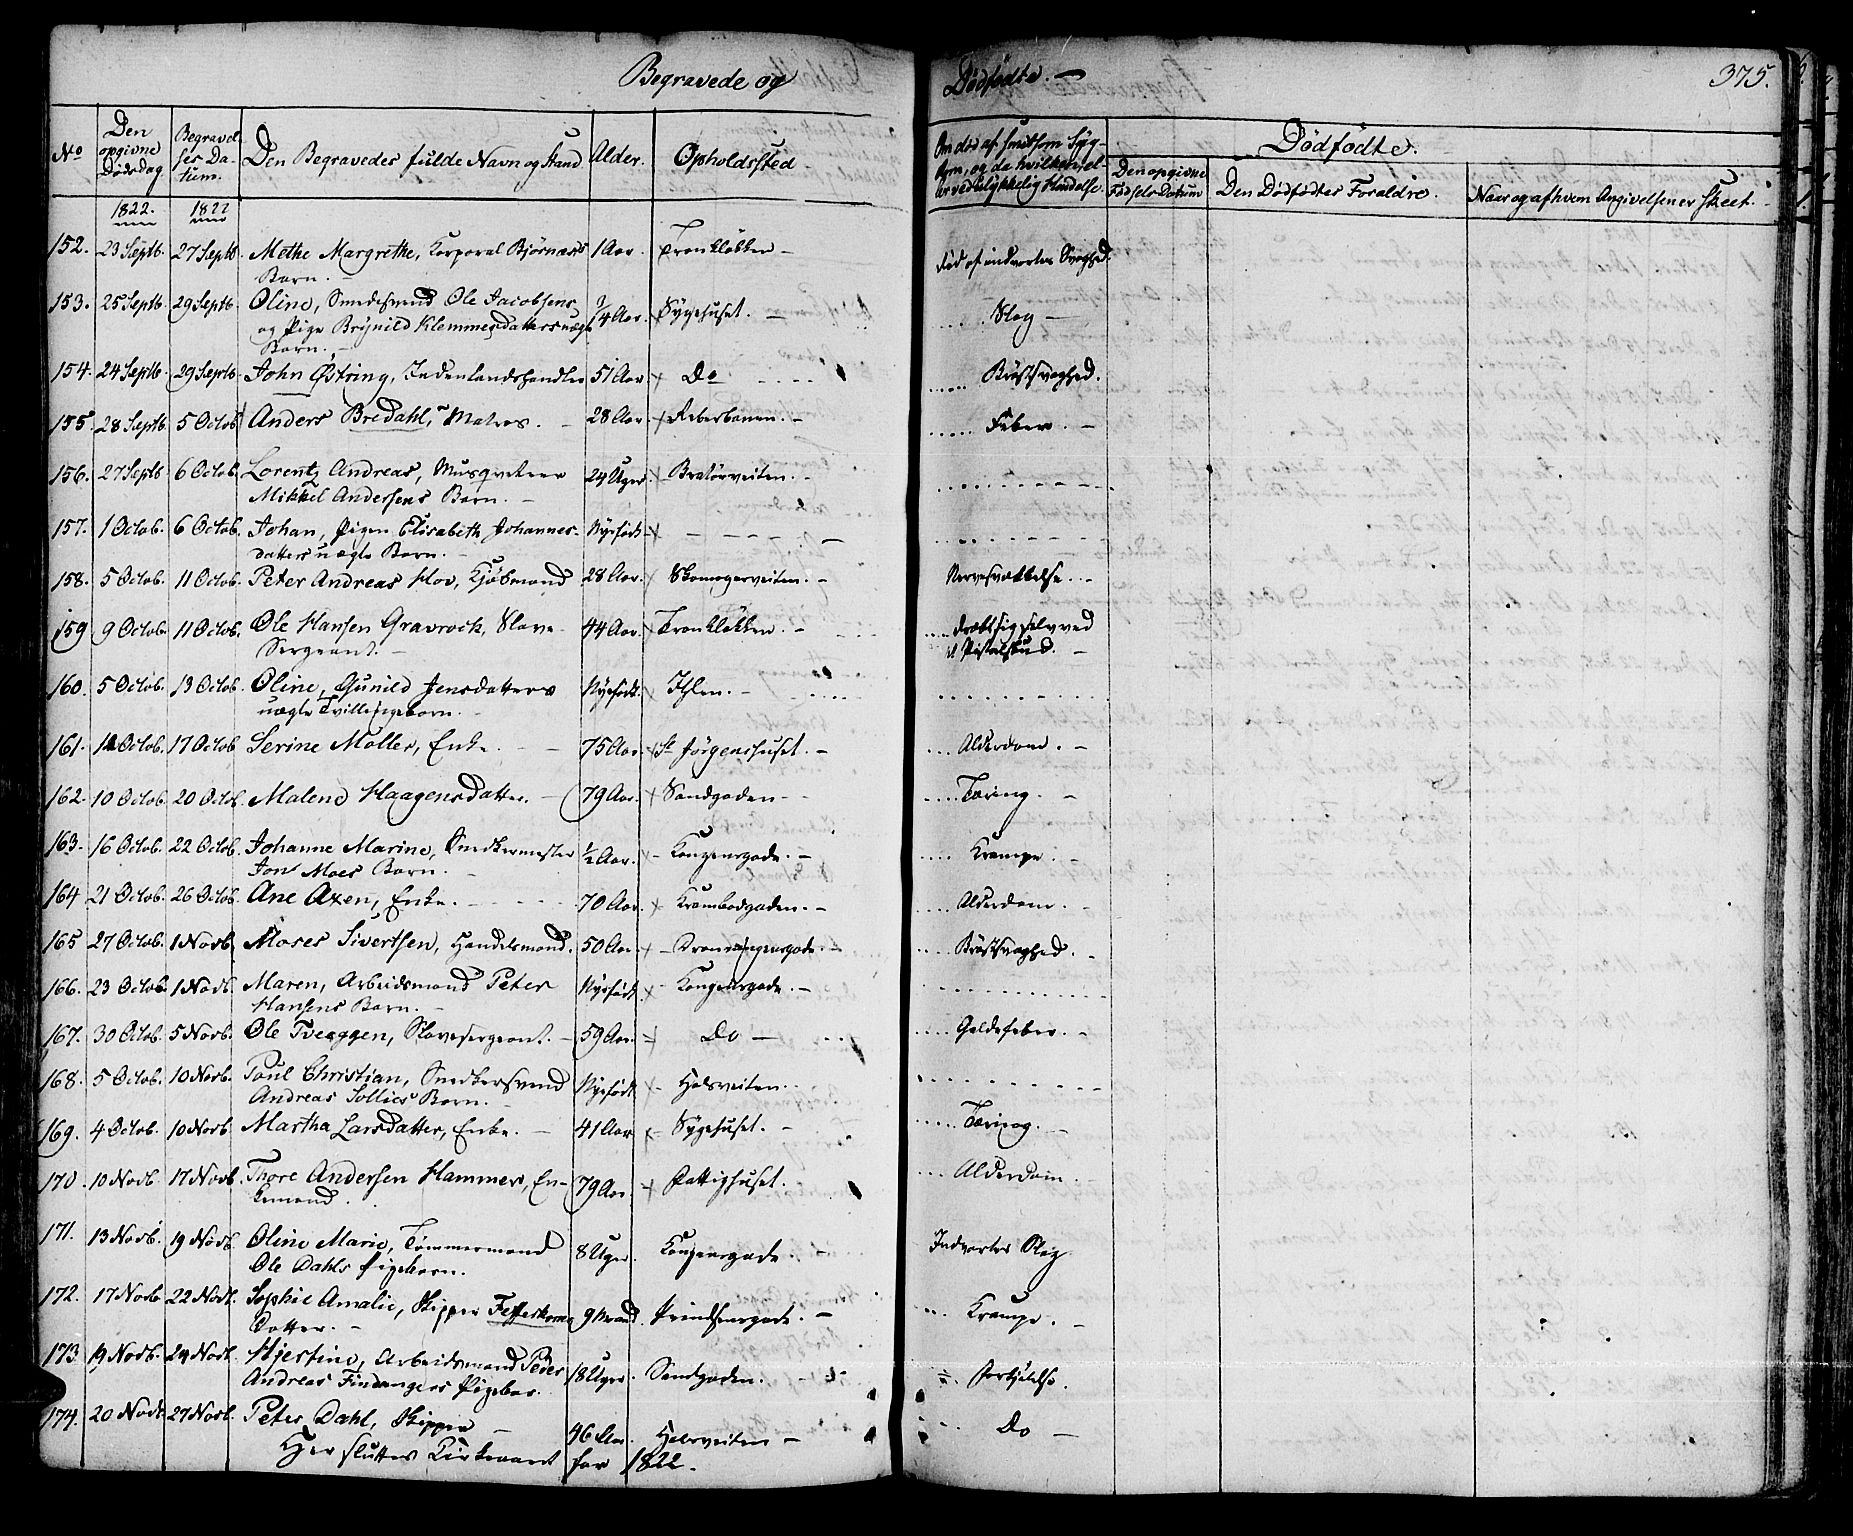 Begravede og Dødfødte. 375.
No
Den opgivne Dødsdag
Begravelses Datum.
Den Begravedes fulde Navn og Stand
Alder.
Opholdsted
Om død af smitsom Sygdom, og da hvilken, eller ved ulykkelig Hændelse.
Dødfødte.
Den opgivne Fødsels Datum
Den Dødfødtes Foraldre.
Naar og af hvem Angivelsen er skeet.
1822. 1822
152. 23 Septb. 27 Septb. Methe Margrethe, Korporal Bjørnæs 1 Aar. Tronkløkken - Død af indvortes Svaghed.
Barn. -
153. 25 Septb. 29 Septb. Oline, Smedesvend Ole Jacobsens 3/4 Aar. Sygehuset. - Slag -
og Pige Brynild Klemmesdatters uægte
Barn. -
154. 24 Septb. 29 Septb. John Østring, Indenlandshandler 51 Aar Do Brøstsvaghed.
155. 28 Septb. 5 Octob. Anders Bredahl, Matros. - 28 Aar. Reberbanen. - Feber. -
156. 27 Septb 6 Octob. Lorentz Andreas, Musqveteer 24 Uger Bratørveiten. -
Mikkel Andersens Barn. -
157. 1 Octob. 6 Octob. Johan, Pigen Elisabeth Johannes- Nyefødt -
datters uægte Barn. -
158. 5 Octob. 11 Octob. Peter Andreas Hov, Kjøbmand 28 Aar. Skomagerveiten. - Nervesvækkelse. -
159 9 Octob. 11 Octob. Ole Hansen Gravrock, Slave- 44 Aar. Tronkløkken. - dræbt sig selv ved
Sergeant. - et Pistolskud. -
160. 5 Octob. 13 Octob. Oline, Gunild Jensdatters Nyefødt. Ihlen. -
uægte Tvillingebarn. -
161. 12 Octob. 17 Octob Serine Møller, Enke. - 75 Aar. St Jørgenshuset. - Alderdom. -
162. 10 Octob. 20 Octob. Malene Haagensdatter. - 79 Aar. Sandgaden - Tæring. -
163. 16 Octob. 22 Octob. Johanne Marine, Snedkermester 1/2 Aar. Kongensgade. - Krampe. -
Jons Moes Barn. -
164 21 Octob. 26 Octob. Ane Axen, Enke. 70 Aar. Krambodgaden. - Alderdom. -
165 27 Octob. 1 Novb. Moses Sivertsen, Handelsmand. 50 Aar Dronningensgade. - Brøstsvaghed. -
166. 23 Octob. 1 Novb. Maren, Arbeidsmand Peter Nyefødt Kongensgade. -
Hansens Barn. -
167. 30 Octob. 5 Novb. Ole Tveaggen, Slavesergeant. - 59 Aar. Do - Galdefeber. -
168. 5 Octob. 10 Novb. Poul Christian, Snedkersvend Nyefødt Holsveiten.
Andreas Sollies Barn. -
169. 4 Octob. 10 Novb Martha Larsdatter, Enke. - 41 Aar Sygehuset. - Tæring. -
170. 10 Novb. 17 Novb. Thore Andersen Hammers, En- 79 Aar. Fattighuset. Alderdom.
kemand.
171. 13 Novb. 19 Novb. Oline Marie, Tømmermand 8 Uger. Kongensgade. - Indvortes Slag
Ole Dahls Pigebarn.
172. 17 Novb 22 Novb. Sophie Amalie, Skipper Fesserkorns 9 Maand Prindsensgade. - Krampe. -
Datter. -
173 19 Novb. 24 Novb. Hjertine, Arbeidsmand Peder 18 Uger. Sandgaden. - Forkjølelse.
Andreas Findangers Pigebar.
174. 20 Novb. 27 Novb. Peter Dahl, Skipper 46 Aar Holsveiten - Do -
Her sluttes Kirkeaaret for 1822.